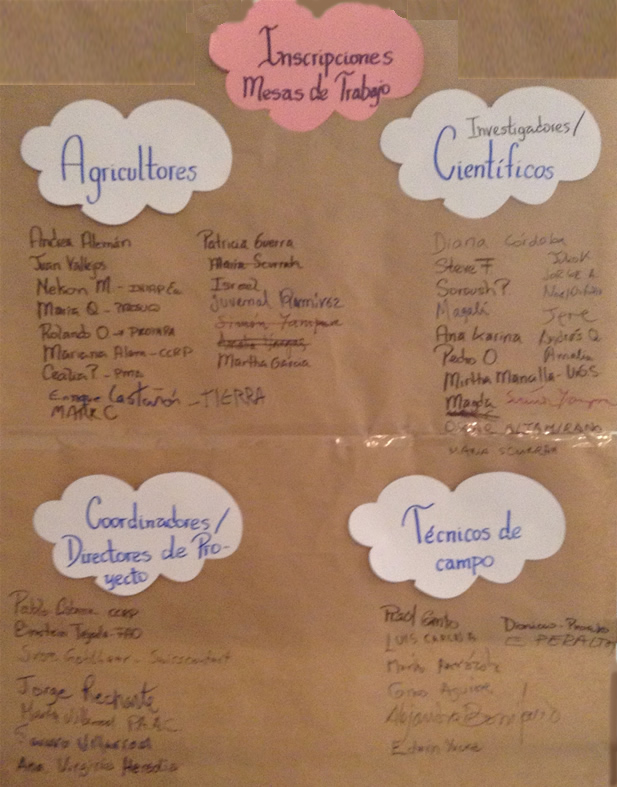 Inscripciones
Mesas de Trabajo
Agricultores
Andrea Alemán
Juan Vallejos
Nelson M - INIAP Ec
Maria Q -
Rolando O → PROINPA
Mariana Alem - CCRP
Cecilia P. - PMA
Enrique Castañón - TIERRA
MARK C
Patricia Guerra
Maria Scurrah
Israel
Juvenal Ramírez
Simón Yampara
Martha Garcia
Investigadores/
Científicos
Diana Córdoba
Steve F
Soroush P.
Magali
Ana Karina
Pedro O
Mirtha Mamalla - UGS
Magda
Oscar ALTAMIRANO
MARIA SCURRAH
JORGE A.
Jere
Andrés Q
Amalia
Simón Yampara
Coordinadores/
Directores de Pro-
yecto
Pablo - CCRP
Einstein Tejada - FAO
- Swisscontact
Jorge Rechante
Maria Villarroel
Villarroel
Ana Virginia Heredia
Técnicos de
campo
LUIS CARLOS A
Maria
Gino Aguirre
Alejandra Bonifacio
Edwin Yucra
Dionicio -
E PERALTA